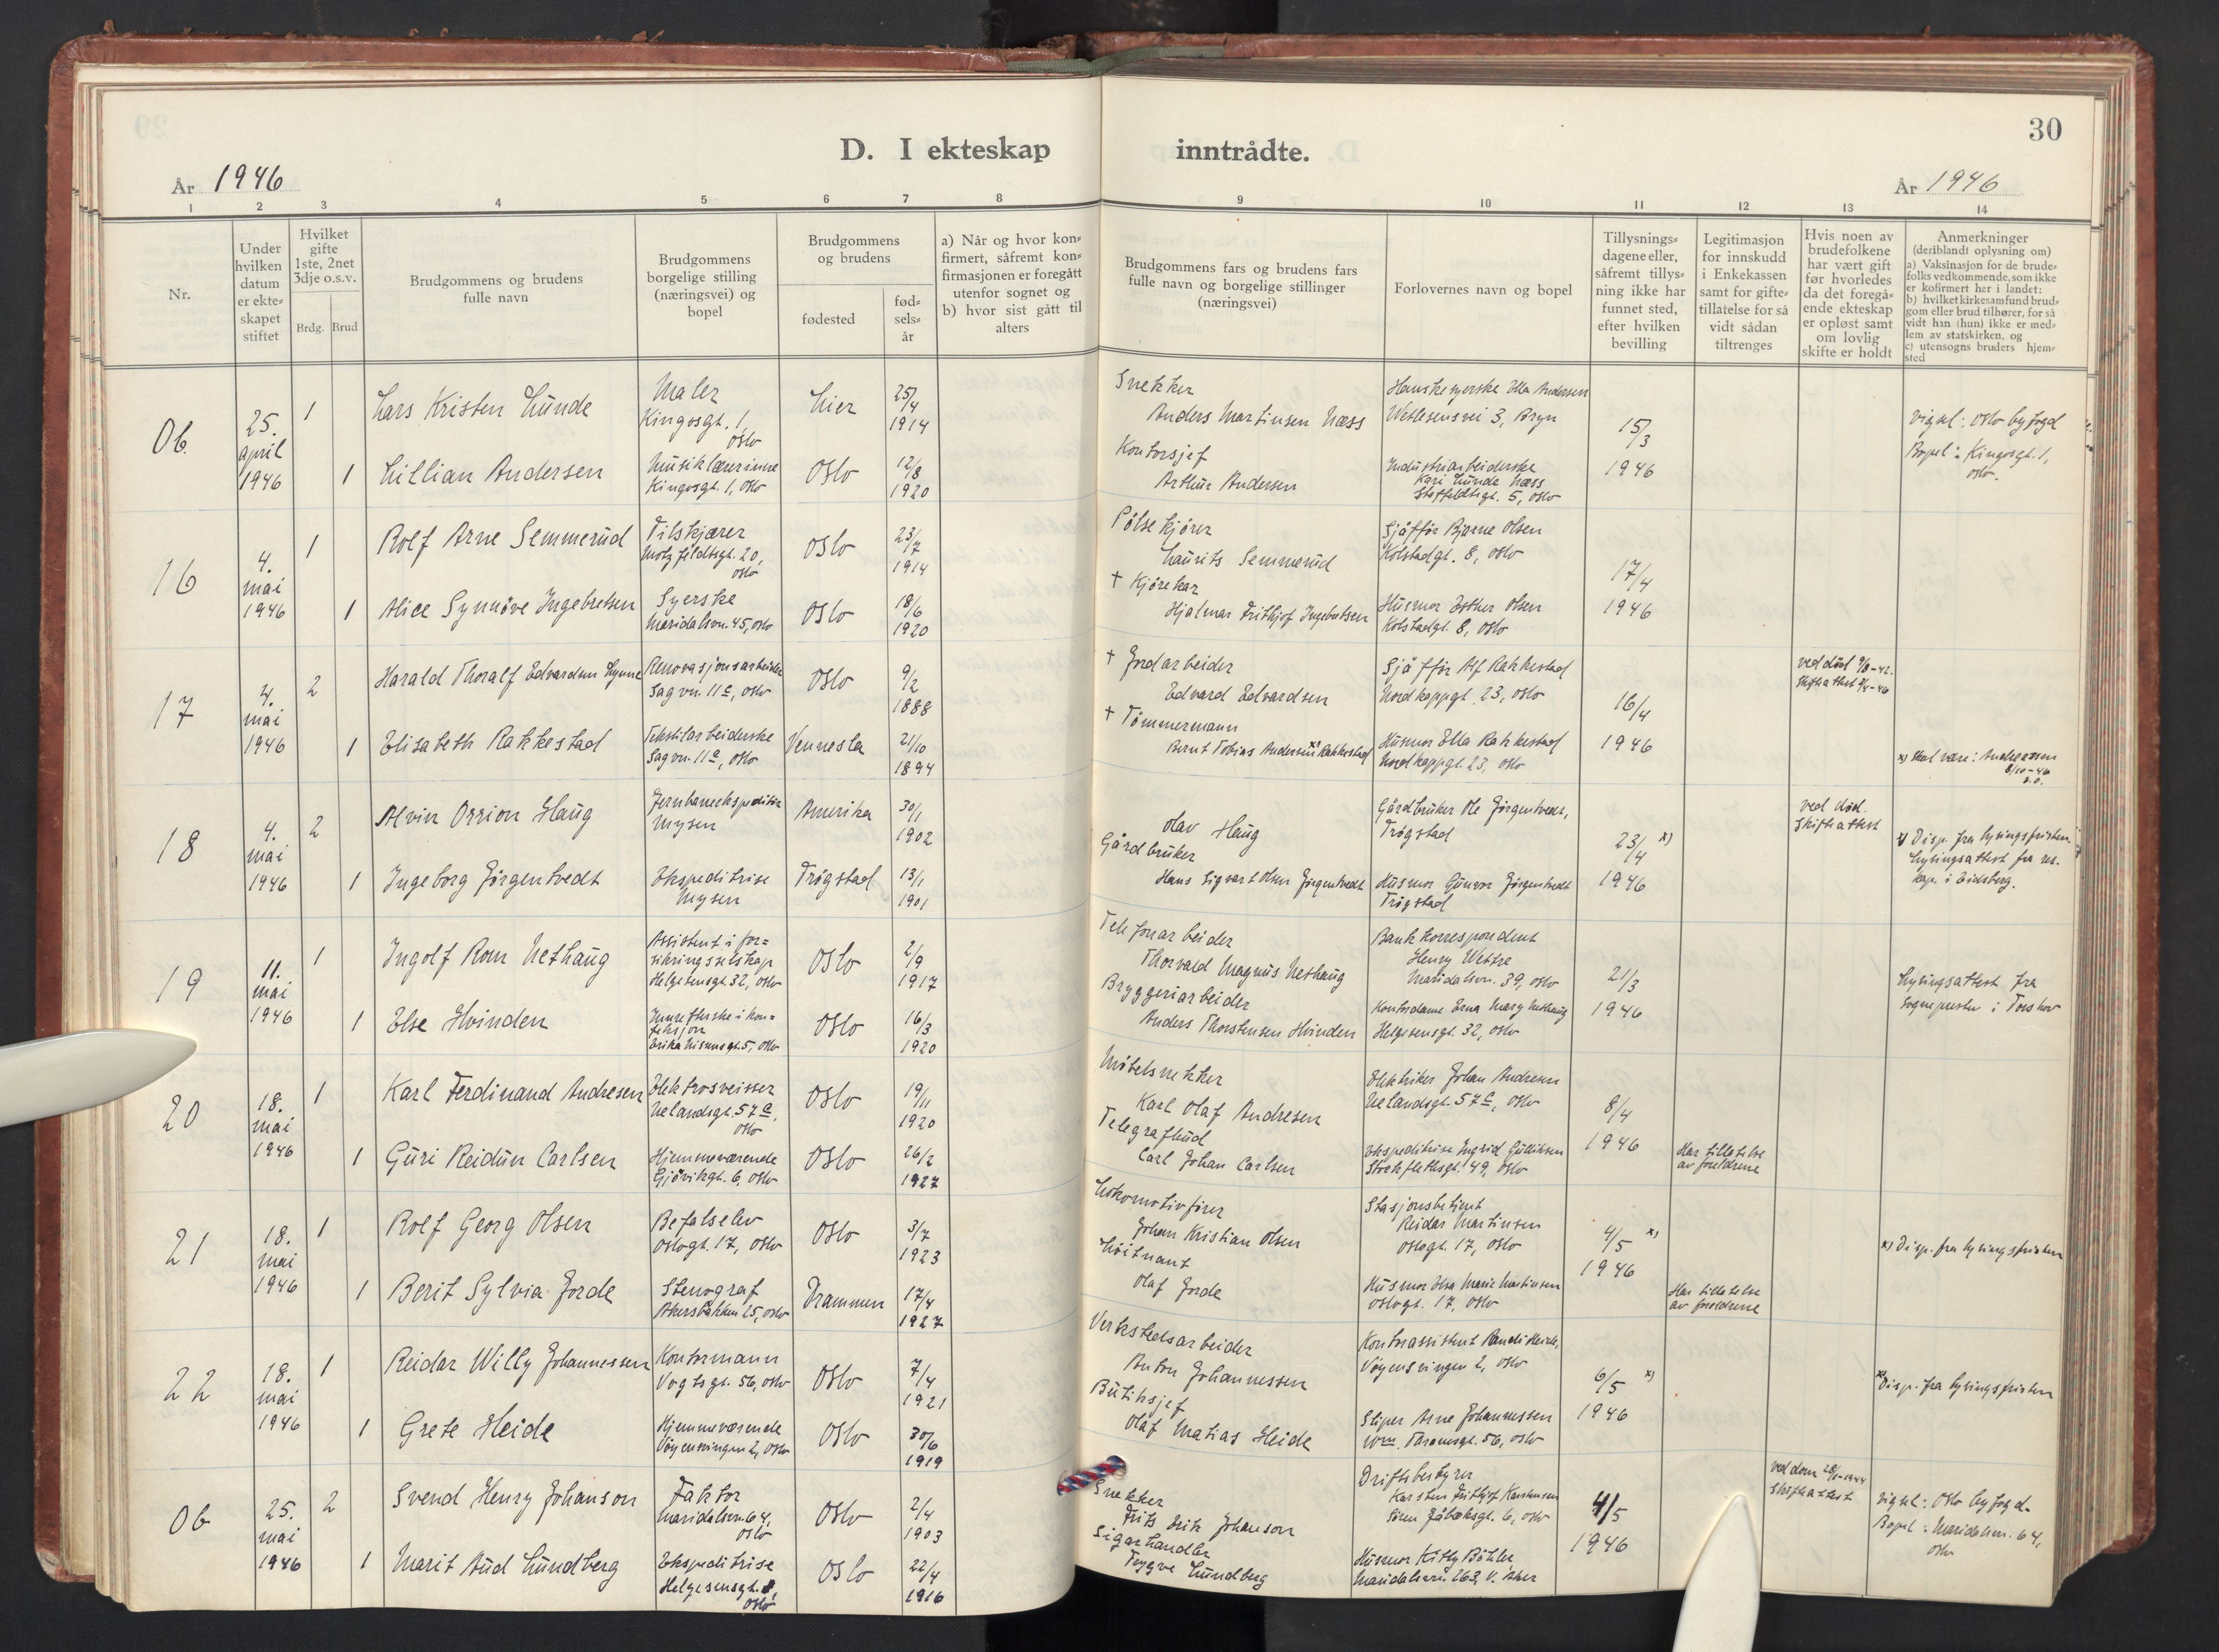 D. I ekteskap inntrådte.
30
År 1946
År 1946
1 2 3 4 5 6 7 8 9 10 11 12 13 14
Nr.
Under hvilken datum er ekteskapet stiftet
Hvilket gifte 1ste, 2net 3dje o.s.v.
Brdg. Brud
Brudgommens og brudens fulle navn
Brudgommens borgelige stilling (næringsvei) og bopel
Brudgommens og brudens
fødested
fødselsår
a) Når og hvor konfirmert, såfremt konfirmasjonen er foregått utenfor sognet og
b) hvor sist gått til alters
Brudgommens fars og brudens fars fulle navn og borgelige stillinger (næringsvei)
Forlovernes navn og bopel
Tillysningsdagene eller, såfremt tillysning ikke har funnet sted, efter hvilken bevilling
Legitimasjon for innskudd i Enkekassen samt for giftetillatelse for så vidt sådan tiltrenges
Hvis noen av brudefolkene har vært gift før hvorledes da det foregående ekteskap er opløst samt om lovlig skifte er holdt
Anmerkninger
(deriblandt oplysning om)
a) Vaksinasjon for de brudefolks vedkommende, som ikke er kofirmert her i landet:
b) hvilket kirkesamfund brudgom eller brud tilhører, for så vidt han (hun) ikke er medlem av statskirken, og
c) utensogns bruders hjemsted
Ob. 25. april 1946
1 Lars Kristen Lunde
Maler
Kingosgt. 1, Oslo
Lier
25/4 1914
Snekker
Anders Martinsen Næss
Hanskesyerske Ella Andersen
Wetlesensvei 3, Bryn
15/3 1946
Vigsel: Oslo byfogd
Bopel: Kingosgt. 1, Oslo.
1 Lillian Andersen
Musiklærerinne
Kingosgt. 1, Oslo
Oslo
12/8 1920
Kontorsjef
Arthur Andersen
Industriarbeiderske
Kari Lunde Næss
5, Oslo
16 4. mai 1946
1 Rolf Arne Semmerud
Pilskjærer
Motzfeldtsgt. 20, Oslo
Oslo
23/7 1914
Pølsekjører
Laurits Semmerud
Sjåffør Bjarne Olsen
Kolstadgt. 8, Oslo
17/4 1946
1 Alice Synnøve Ingebretsen
Syerske
Maridalsvn. 45, Oslo
Oslo
18/6 1920
+ Kjørekar
Hjalmar Frithjof Ingebretsen
Husmor Esther Olsen
Kolstadgt. 8, Oslo
17 4. mai 1946
2 Harald Thoralf Edvardsen
Renovasjonsarbeider
Sagvn. 11c, Oslo
Oslo
9/2 1888
+ Jordarbeider
Edvard Edvardsen
Sjåffør Alf Rakkestad
Nordkappgt. 23, Oslo
16/4 1946
ved død
Skifteattest
1 Elisabeth Rakkestad
Tekstilarbeiderske
Sagvn. 11c, Oslo
Vennesla
21/10 1894
+ Tømmermann
Bernt Tobias Andersen x) Rakkestad
Husmor Ella Rakkestad
Nordkappgt. 23, Oslo
x) Skal være: Andreassen
8/10-46
18 4. mai 1946
2 Alvin Orrion Haug
Jernbaneekspeditør
Mysen
Amerika
30/1 1902
Olav Haug
Gårdbruker Ole Jørgentvedt,
Trøgstad
23/4 x) 1946
ved død.
Skifteattest
x) Disp. fra lysingsfristen.
Lysingsattest fra res. kap. i Eidsberg.
1 Ingeborg Jørgentvedt
Ekspeditrise
Mysen
Trøgstad
13/1 1901
Gårdbruker
Hans Sigvart Olsen Jørgentvedt
Husmor Gunvor Jørgentvedt
Trøgstad
19 11. mai 1946
1 Ingolf Rom Nethaug
Assistent i forsikringsselskap
Helgesensgt. 32, Oslo
Oslo
2/9 1917
Telefonarbeider
Thorvald Magnus Nethaug
Bankkorrespondent
Henry Wettre
Maridalsvn. 39, Oslo
21/3 1946
Lysingsattest fra
sognepresten i Torshov
1 Else Hvinden
i konfeksjon
5, Oslo
Oslo
16/3 1920
Bryggeriarbeider
Anders Thorstensen Hvinden
Kontordame Erna Mary Nethaug
Helgesensgt. 32, Oslo
20 18. mai 1946
1 Karl Ferdinand Andresen
Elektrosveisser
Uelandsgt. 57c, Oslo
Oslo
19/11 1920
Møbelsnekker
Karl Olaf Andresen
Elektriker Johan Andresen
Uelandsgt. 57c, Oslo
8/4 1946
1 Guri Reidun Carlsen
Hjemmeværende
Gjøvikgt. 6, Oslo
Oslo
26/2 1927
Telegrafbud
Carl Johan Carlsen
Ekspeditrise Ingrid Gulliksen
Stockflethsgt. 49, Oslo
Har tillatelse
av foreldrene
21 18. mai 1946
1 Rolf Georg Olsen
Befalselev
Oslogt. 17, Oslo
Oslo
3/7 1923
Lokomotivfører
Johan Kristian Olsen
Stasjonsbetjent
Reidar Martinsen
Oslogt. 17, Oslo
4/5 x) 1946
x) Disp. fra lysingsfristen
1 Berit Sylvia Jorde
Stenograf
Akersbakken 25, Oslo
Drammen
17/4 1927
Løitnant
Olaf Jorde
Husmor Elsa Marie Martinsen
Oslogt. 17, Oslo
Har tillatelse
av foreldrene
22 18. mai 1946
1 Reidar Willy Johannessen
Kontormann
Vogtsgt. 56, Oslo
Oslo
7/4 1921
Verkstedsarbeider
Anton Johannessen
Kontorassistent Randi Heide,
Vøyensvingen 2, Oslo
6/5 x) 1946
x) Disp. fra lysingsfristen
1 Grete Heide
Hjemmeværende
Vøyensvingen 2, Oslo
Oslo
30/6 1919
Butiksjef
Olaf Matias Heide
Sliper Arne Johannessen
56, Oslo
Ob 25. mai 1946
2 Svend Henry Johanson
Faktor
Maridalsvn. 64, Oslo
Oslo
2/4 1903
Snekker
Frits Erik Johanson
Driftsbestyrer
Karsten Frithjof Karstensen
Søren Jåbæksgt. 6, Oslo
4/5 1946
ved dom
Skifteattest
Vigsel: Oslo byfogd.
Bopel: Maridalsvn. 64, Oslo
1 Marit Aud Lundberg
Ekspeditrise
Helgesensgt. 8, Oslo
Oslo
22/4 1916
Sigarhandler
Trygve Lundberg
Husmor Kitty Bøhler
Maridalsvn. 263, V. Aker